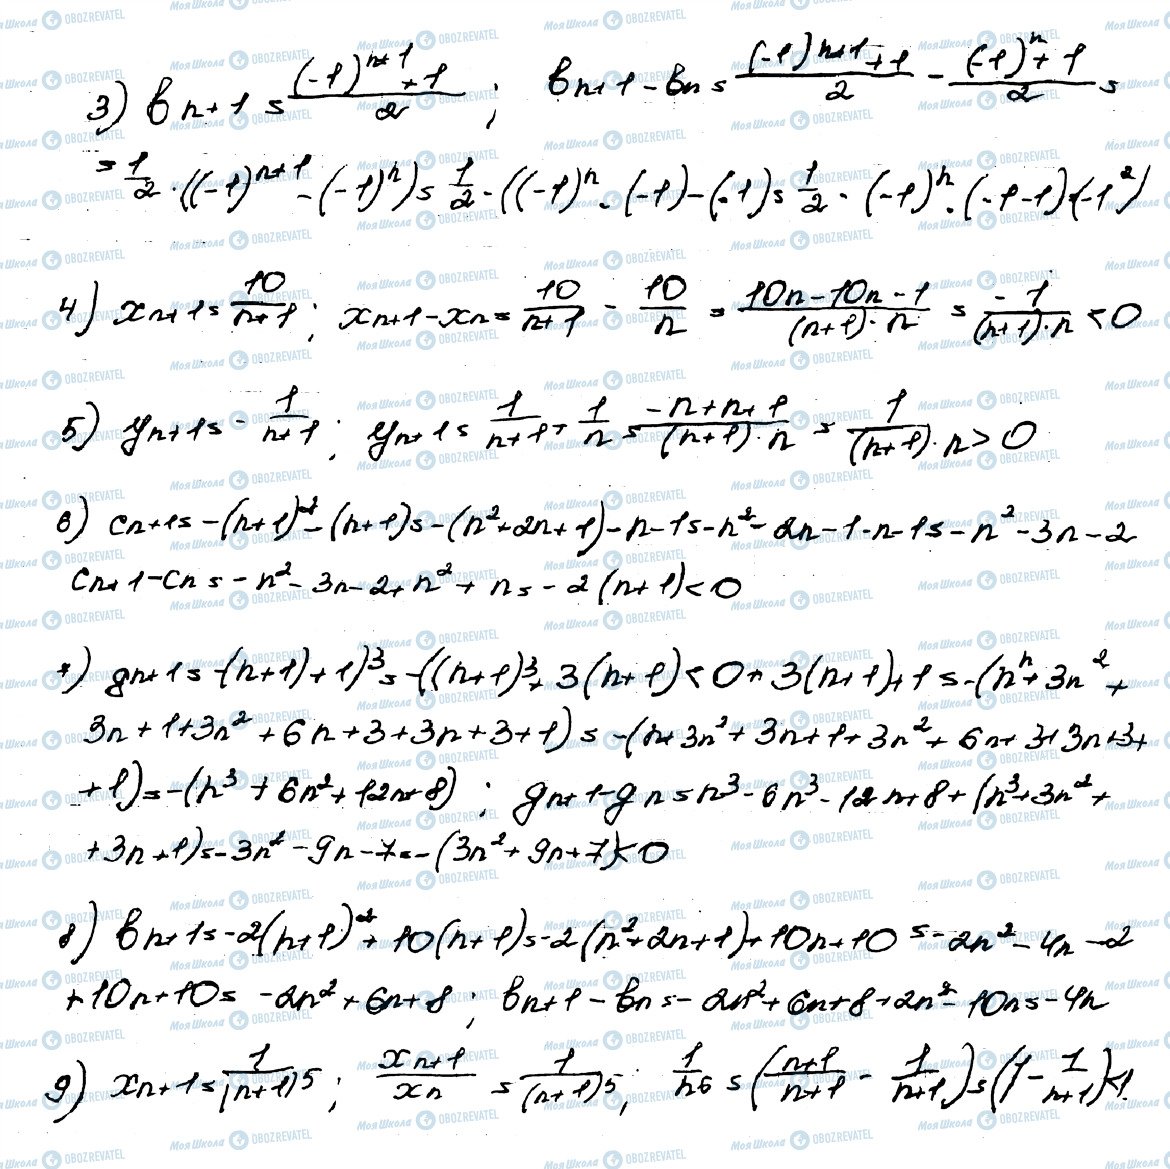 3) bn+1 = ((-1)^(n+1) + 1)/2 ; bn+1 - bn = ((-1)^(n+1) + 1)/2 - ((-1)^n + 1)/2 =
= 1/2 · ((-1)^(n+1) - (-1)^n) = 1/2 · ((-1)^n · (-1) - (-1) = 1/2 · (-1)^n · (-1-1)
4) xn+1 = 10/(n+1) ; xn+1 - xn = 10/(n+1) - 10/n = (10n-10n-1)/((n+1)·n) = -1/((n+1)·n) < 0
5) yn+1 = - 1/(n+1) ; yn+1 = 1/(n+1) + 1/n = (-n+n+1)/((n+1)·n) = 1/((n+1)·n) > 0
6) cn+1 = -(n+1)^2 - (n+1) = -(n^2+2n+1) - n-1 = -n^2 - 2n-1-n-1 = -n^2-3n-2
cn+1 - cn = -n^2 - 3n-2+n^2 + n = -2(n+1) < 0
7) gn+1 = -(n+1)+1)^3 = -((n+1)^3 + 3(n+1) < 0 + 3(n+1)+1 = -(n^n + 3n^2 +
3n+1+3n^2 + 6n+3+3n+3+1) = -(n+3n^2 + 3n+1+3n^2 + 6n+3+3n+3+
+1) = -(n^3 + 6n^2 + 12n+8) ; gn+1 - gn = n^3 - 6n^3 - 12n+8+(n^3+3n^2+
+3n+1) = -3n^2 - 9n-7 = -(3n^2+9n+7) < 0
8) bn+1 = -2(n+1)^2 + 10(n+1) = -2(n^2+2n+1)+10n+10 = -2n^2-4n-2
+10n+10 = -2n^2+6n+8 ; bn+1 - bn = -2n^2+6n+8+2n^2-10n = -4n
9) xn+1 = 1/(n+1)5 ; xn+1/xn = 1/(n+1)5 ; 1/n6 = ((n+1)/(n+1) - 1/(n+1)) = (1 - 1/(n+1)) < 1.
МояШкола OBOZREVATEL